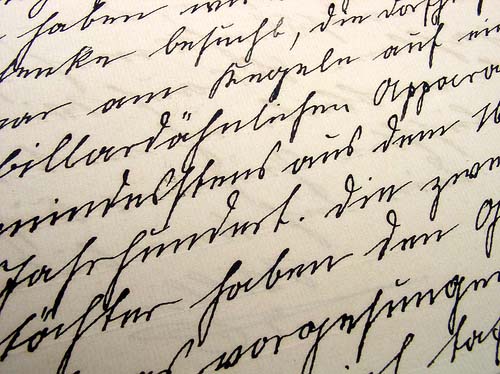 haben
besucht, die dort
war am Kegeln auf
billardähnlichen Appara
mindestens aus dem 16
Jahrhundert. Die zwe
töchter haben den
vorgesungen